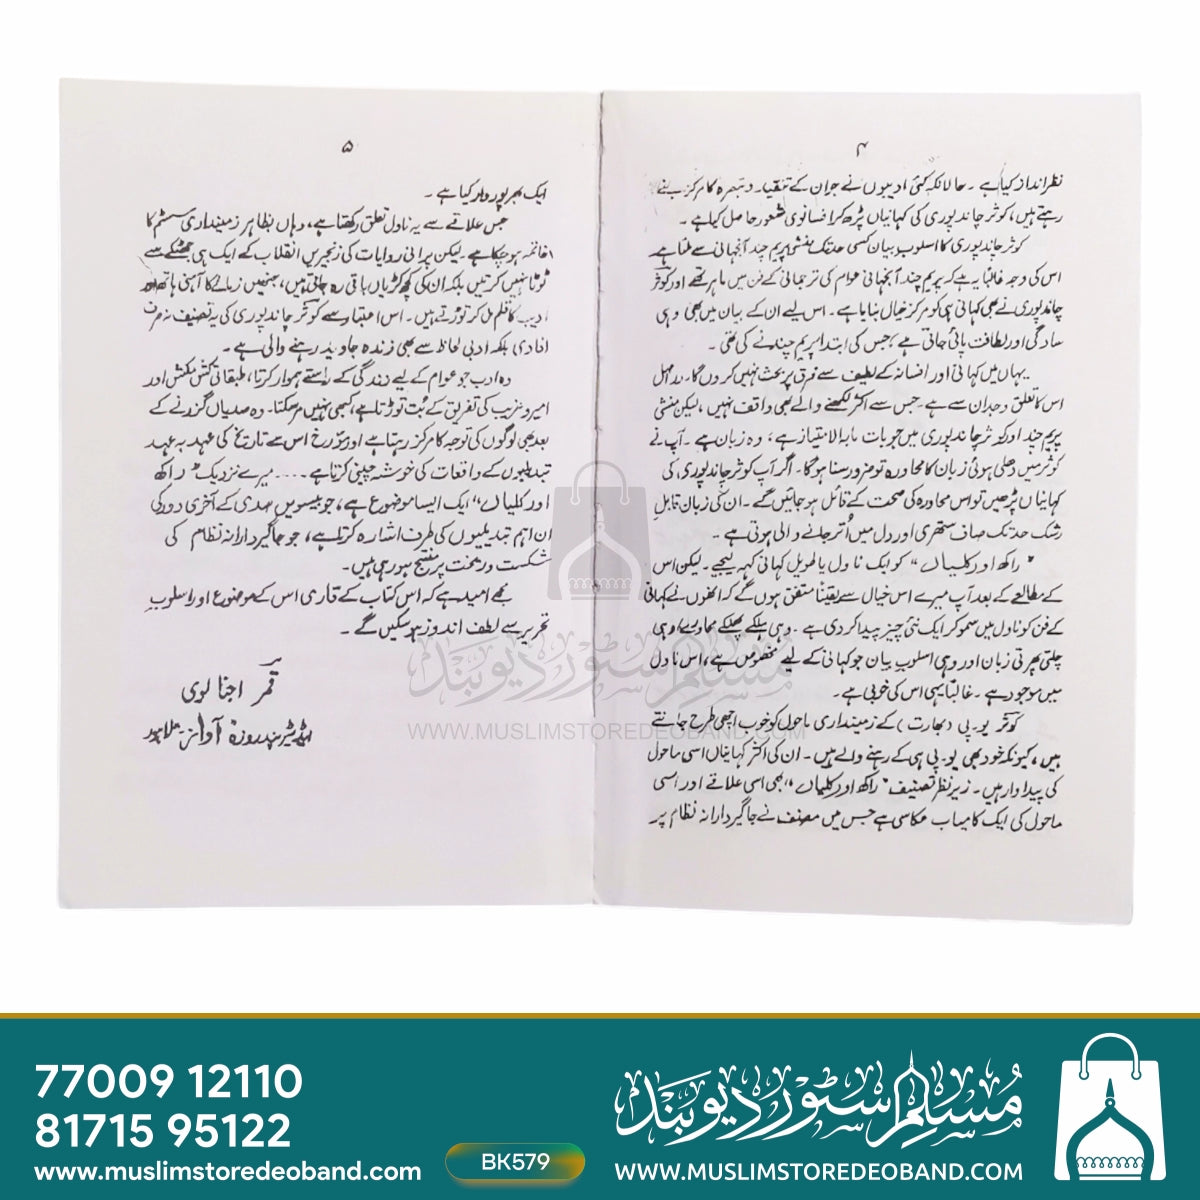 ۴
نظر انداز کیا ہے ۔ حالانکہ کئی ادیبوں نے جو ان کے تنقید و تبصرہ کا مرکز بنے
رہتے ہیں، کوثر چاندپوری کی کہانیاں پڑھ کر افسانوی شعور حاصل کیا ہے ۔
کوثر چاندپوری کا اسلوب بیان کسی حد تک منشی پریم چند آنجہانی سے ملتا ہے
اس کی وجہ غالباً یہ ہے کہ پریم چند آنجہانی عوام کی ترجمانی کے فن میں ماہر تھے اور کوثر
چاندپوری نے بھی کہانی ہی کو مرکز خیال بنایا ہے ۔ اس لیے ان کے بیان میں بھی وہی
سادگی اور لطافت پائی جاتی ہے، جس کی ابتدا پریم چند نے کی تھی ۔
یہاں میں کہانی اور افسانہ کے لطیف سے فرق پر بحث نہیں کروں گا۔ در اصل
اس کا تعلق وجدان سے ہے ۔ جس سے اکثر لکھنے والے بھی واقف نہیں ، لیکن منشی
پریم چند اور کوثر چاندپوری میں جو بات مابہ الامتیاز ہے ، وہ زبان ہے ۔ آپ نے
کوثر میں دھلی ہوئی زبان کا محاورہ تو ضرور سنا ہوگا ۔ اگر آپ کوثر چاندپوری کی
کہانیاں پڑھیں تو اس محاورہ کی صحت کے قائل ہو جائیں گے ۔ ان کی زبان قابلِ
رشک حد تک صاف ستھری اور دل میں اُتر جانے والی ہوتی ہے ۔
"راکھ اور کلیاں" کو ایک ناول یا طویل کہانی کہہ لیجیے ۔ لیکن اس
کے مطالعے کے بعد آپ میرے اس خیال سے یقیناً متفق ہوں گے کہ انھوں نے کہانی
کے فن کو ناول میں سمو کر ایک نئی چیز پیدا کر دی ہے ۔ وہی ہلکے پھلکے محاورے، وہی
چلتی پھرتی زبان اور وہی اسلوبِ بیان جو کہانی کے لیے مخصوص ہے ، اس ناول
میں موجود ہے ۔ غالباً یہی اس کی خوبی ہے ۔
کوثر یو۔پی (بھارت) کے زمینداری ماحول کو خوب اچھی طرح جانتے
ہیں ، کیونکہ خود بھی یو۔پی ہی کے رہنے والے ہیں ۔ ان کی اکثر کہانیاں اسی ماحول
کی پیداوار ہیں ۔ زیر نظر تصنیف "راکھ اور کلیاں" بھی اسی علاقے اور اسی
ماحول کی ایک کامیاب عکاسی ہے جس میں مصنف نے جاگیردارانہ نظام پر
۵
ایک بھرپور وار کیا ہے ۔
جس علاقے سے یہ ناول تعلق رکھتا ہے ، وہاں بظاہر زمینداری سسٹم کا
خاتمہ ہو چکا ہے ۔ لیکن پرانی روایات کی زنجیریں انقلاب کے ایک ہی جھٹکے سے
ٹوٹا نہیں کرتیں بلکہ ان کی کچھ کڑیاں باقی رہ جاتی ہیں، جنھیں زمانے کا آہنی ہاتھ اور
ادیب کا قلم مل کر توڑتے ہیں ۔ اس اعتبار سے کوثر چاندپوری کی یہ تصنیف نہ صرف
افادی بلکہ ادبی لحاظ سے بھی زندہ جاوید رہنے والی ہے ۔
وہ ادب جو عوام کے لیے زندگی کے راستے ہموار کرتا ، طبقاتی کش مکش اور
امیر و غریب کی تفریق کے بُت توڑتا ہے ، کبھی نہیں مر سکتا ۔ وہ صدیاں گزرنے کے
بعد بھی لوگوں کی توجہ کا مرکز رہتا ہے اور مؤرخ اس سے تاریخ کی عہد بہ عہد
تبدیلیوں کے واقعات کی خوشہ چینی کرتا ہے .... میرے نزدیک "راکھ
اور کلیاں" ایک ایسا موضوع ہے ، جو بیسویں صدی کے آخری دور کی
ان اہم تبدیلیوں کی طرف اشارہ کرتا ہے ، جو جاگیردارانہ نظام کی
شکست و ریخت پر منتج ہو رہی ہیں ۔
مجھے امید ہے کہ اس کتاب کے قاری اس کے موضوع اور اسلوبِ
تحریر سے لطف اندوز ہو سکیں گے ۔
قمر اجنالوی
ایڈیٹر پندرہ روزہ آواز لاہور
مسلم سٹور دیوبند
WWW.MUSLIMSTOREDEOBAND.COM
77009 12110
81715 95122
www.muslimstoredeoband.com
BK579
مسلم سٹور دیوبند
WWW.MUSLIMSTOREDEOBAND.COM